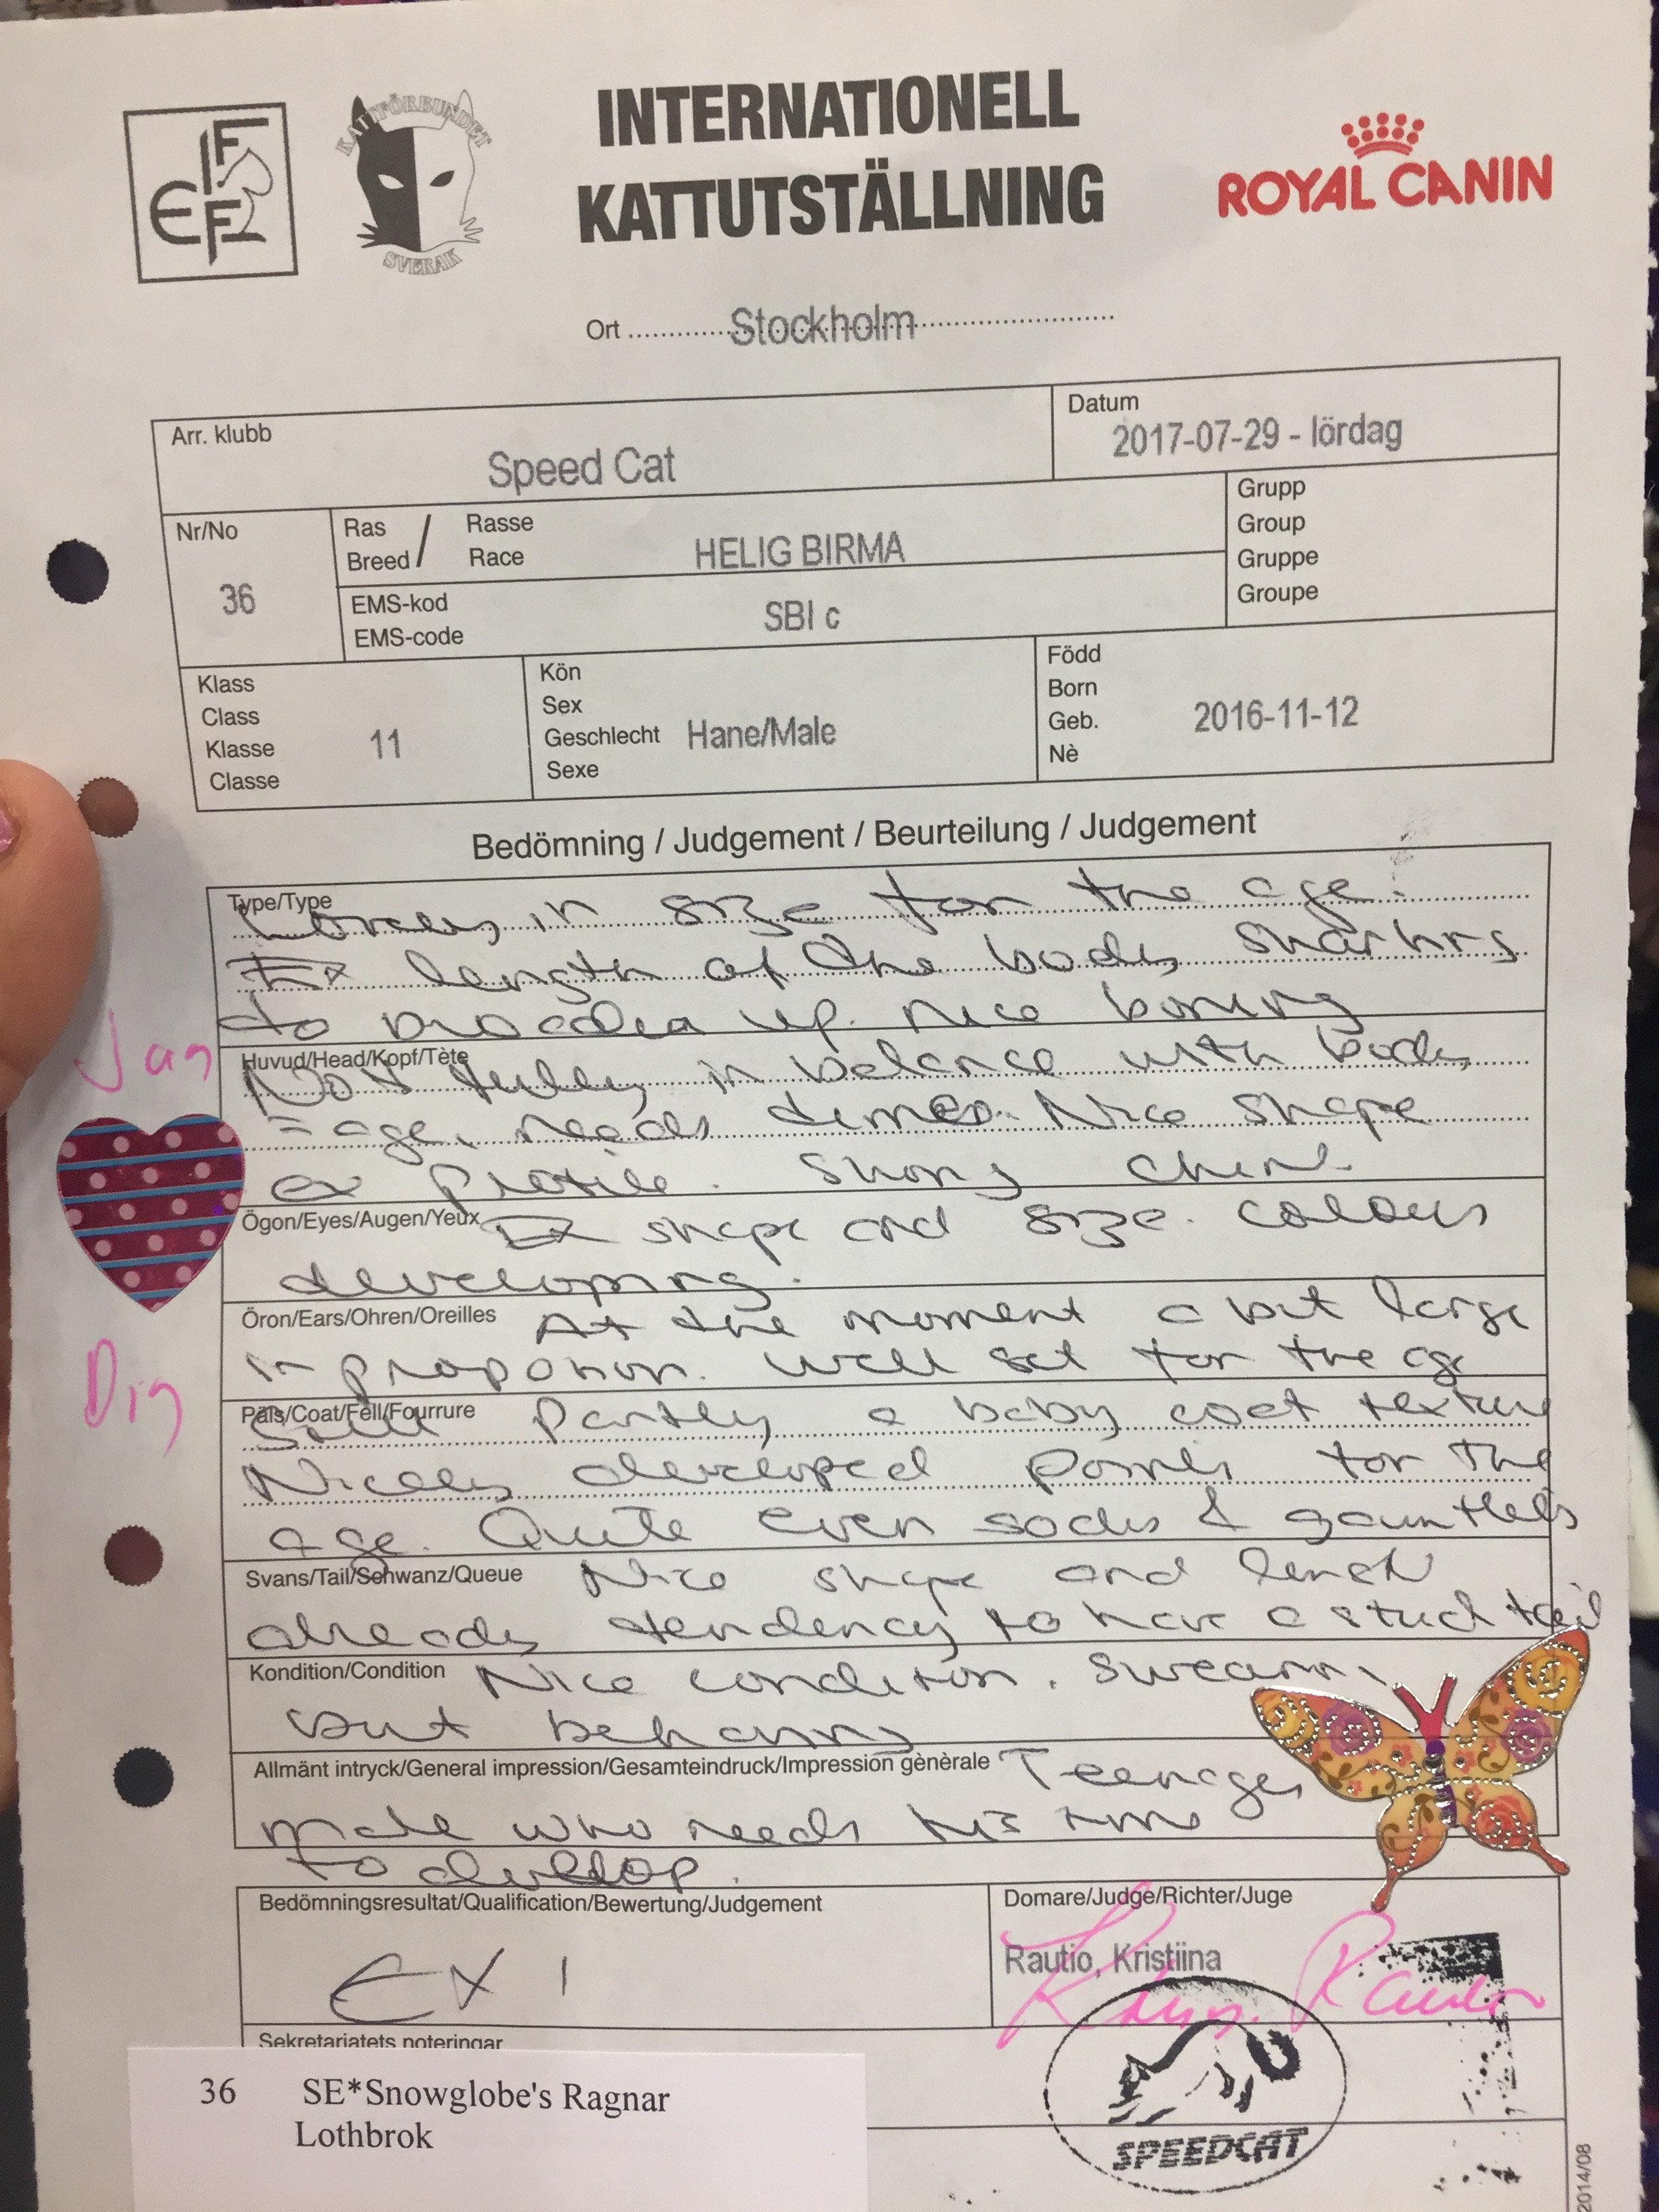 FIFE
KATTFÖRBUNDET
SVERAK
INTERNATIONELL
KATTUTSTÄLLNING
ROYAL CANIN
Ort Stockholm
Arr. klubb
Speed Cat
Datum
2017-07-29 - lördag
Nr/No
36
Ras / Rasse
Breed Race
HELIG BIRMA
EMS-kod
EMS-code
SBI c
Grupp
Group
Gruppe
Groupe
Klass
Class
Klasse
Classe
11
Kön
Sex
Geschlecht
Sexe
Hane/Male
Född
Born
Geb.
Nè
2016-11-12
Bedömning / Judgement / Beurteilung / Judgement
Type/Type
in size for the age.
Ex length of the body starting
to up. Nice boning
Huvud/Head/Kopf/Tète
Not fully in balance with body
= age, needs time. Nice shape
ex profile. Strong chin.
Ögon/Eyes/Augen/Yeux
Ex shape and size. colour
developing.
Öron/Ears/Ohren/Oreilles
At the moment a bit large
in proportion. Well set for the age
Päls/Coat/Fell/Fourrure
Still partly a baby coat texture
Nicely developed points for the
age. Quite even socks & gauntlets
Svans/Tail/Schwanz/Queue
Nice shape and length
already tendency to have a stud tail
Kondition/Condition
Nice condition. swearing
but behaving
Allmänt intryck/General impression/Gesamteindruck/Impression gènèrale
Teenager
male who needs his time
to develop.
Jag
Dig
Bedömningsresultat/Qualification/Bewertung/Judgement
EX 1
Domare/Judge/Richter/Juge
Rautio, Kristiina
Sekretariatets noteringar
36 SE*Snowglobe's Ragnar
Lothbrok
SPEEDCAT
2014/08